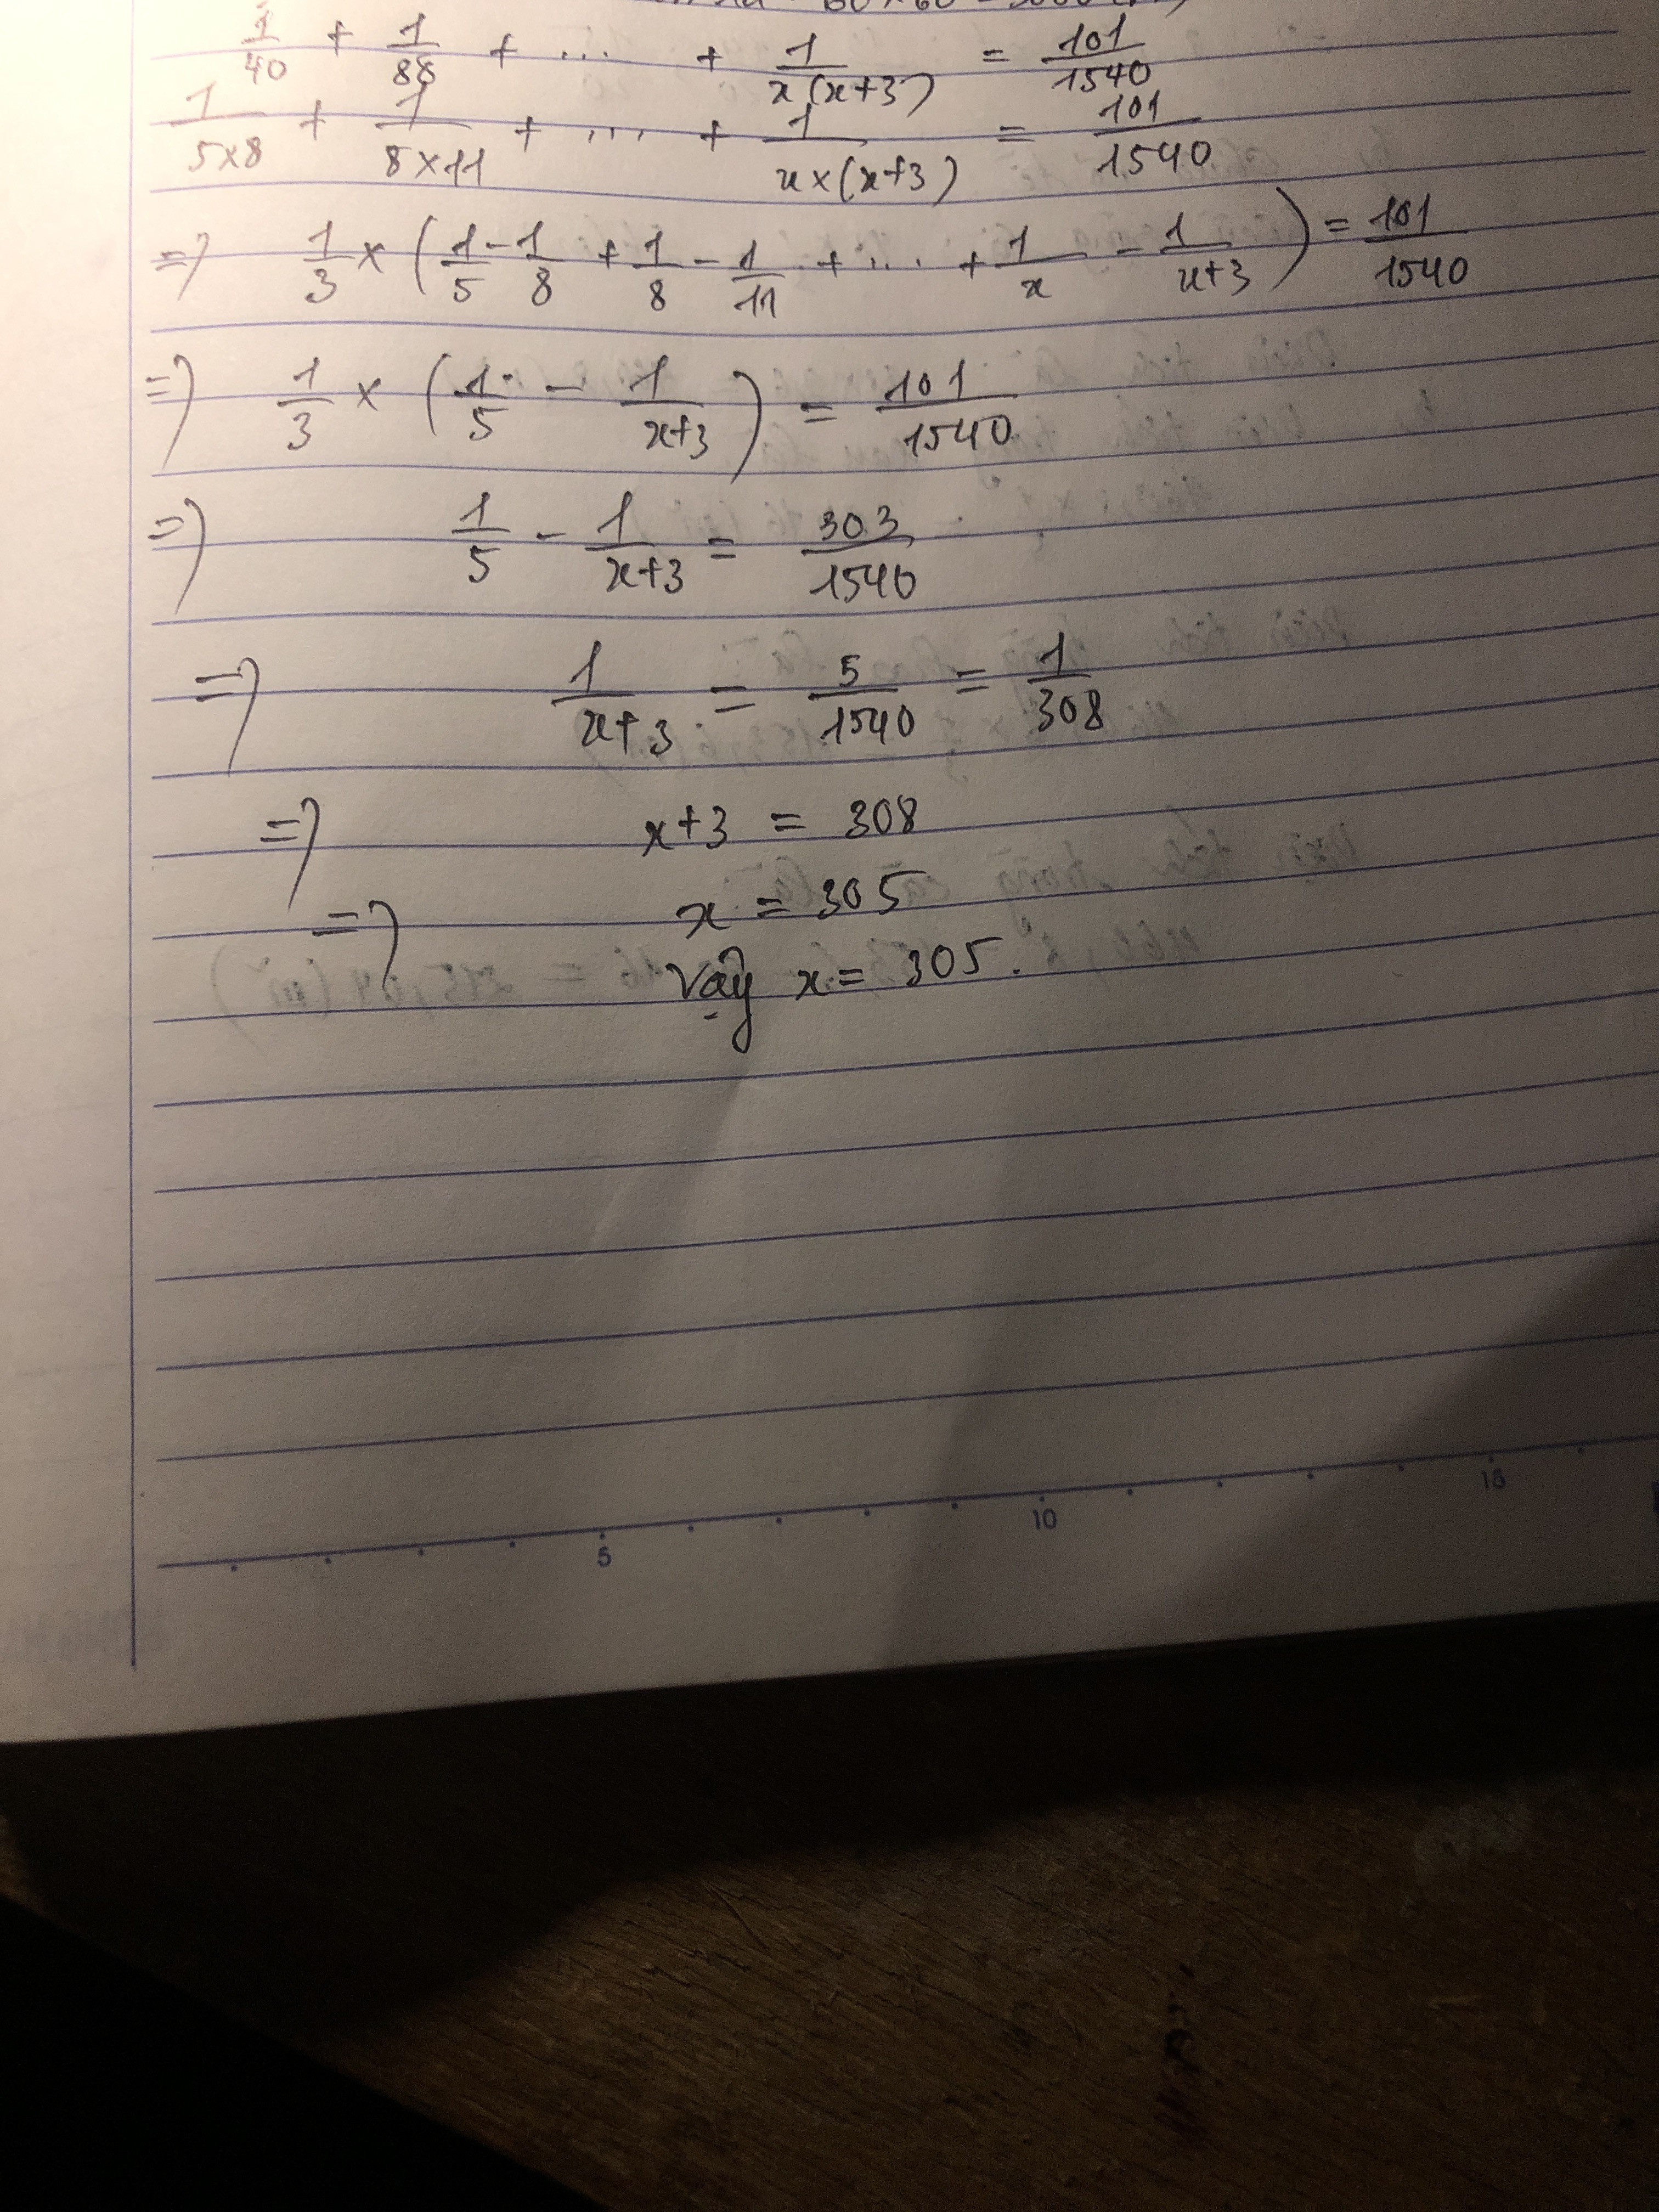 1/40 + 1/88 + ... + 1/x(x+3) = 101/1540
1/5×8 + 1/8×11 + ... + 1/x×(x+3) = 101/1540
=> 1/3 × (1/5 - 1/8 + 1/8 - 1/11 + ... + 1/x - 1/x+3) = 101/1540
=> 1/3 × (1/5 - 1/x+3) = 101/1540
=> 1/5 - 1/x+3 = 303/1540
=> 1/x+3 = 5/1540 = 1/308
=> x+3 = 308
=> x = 305
Vậy x = 305.
5 10 15